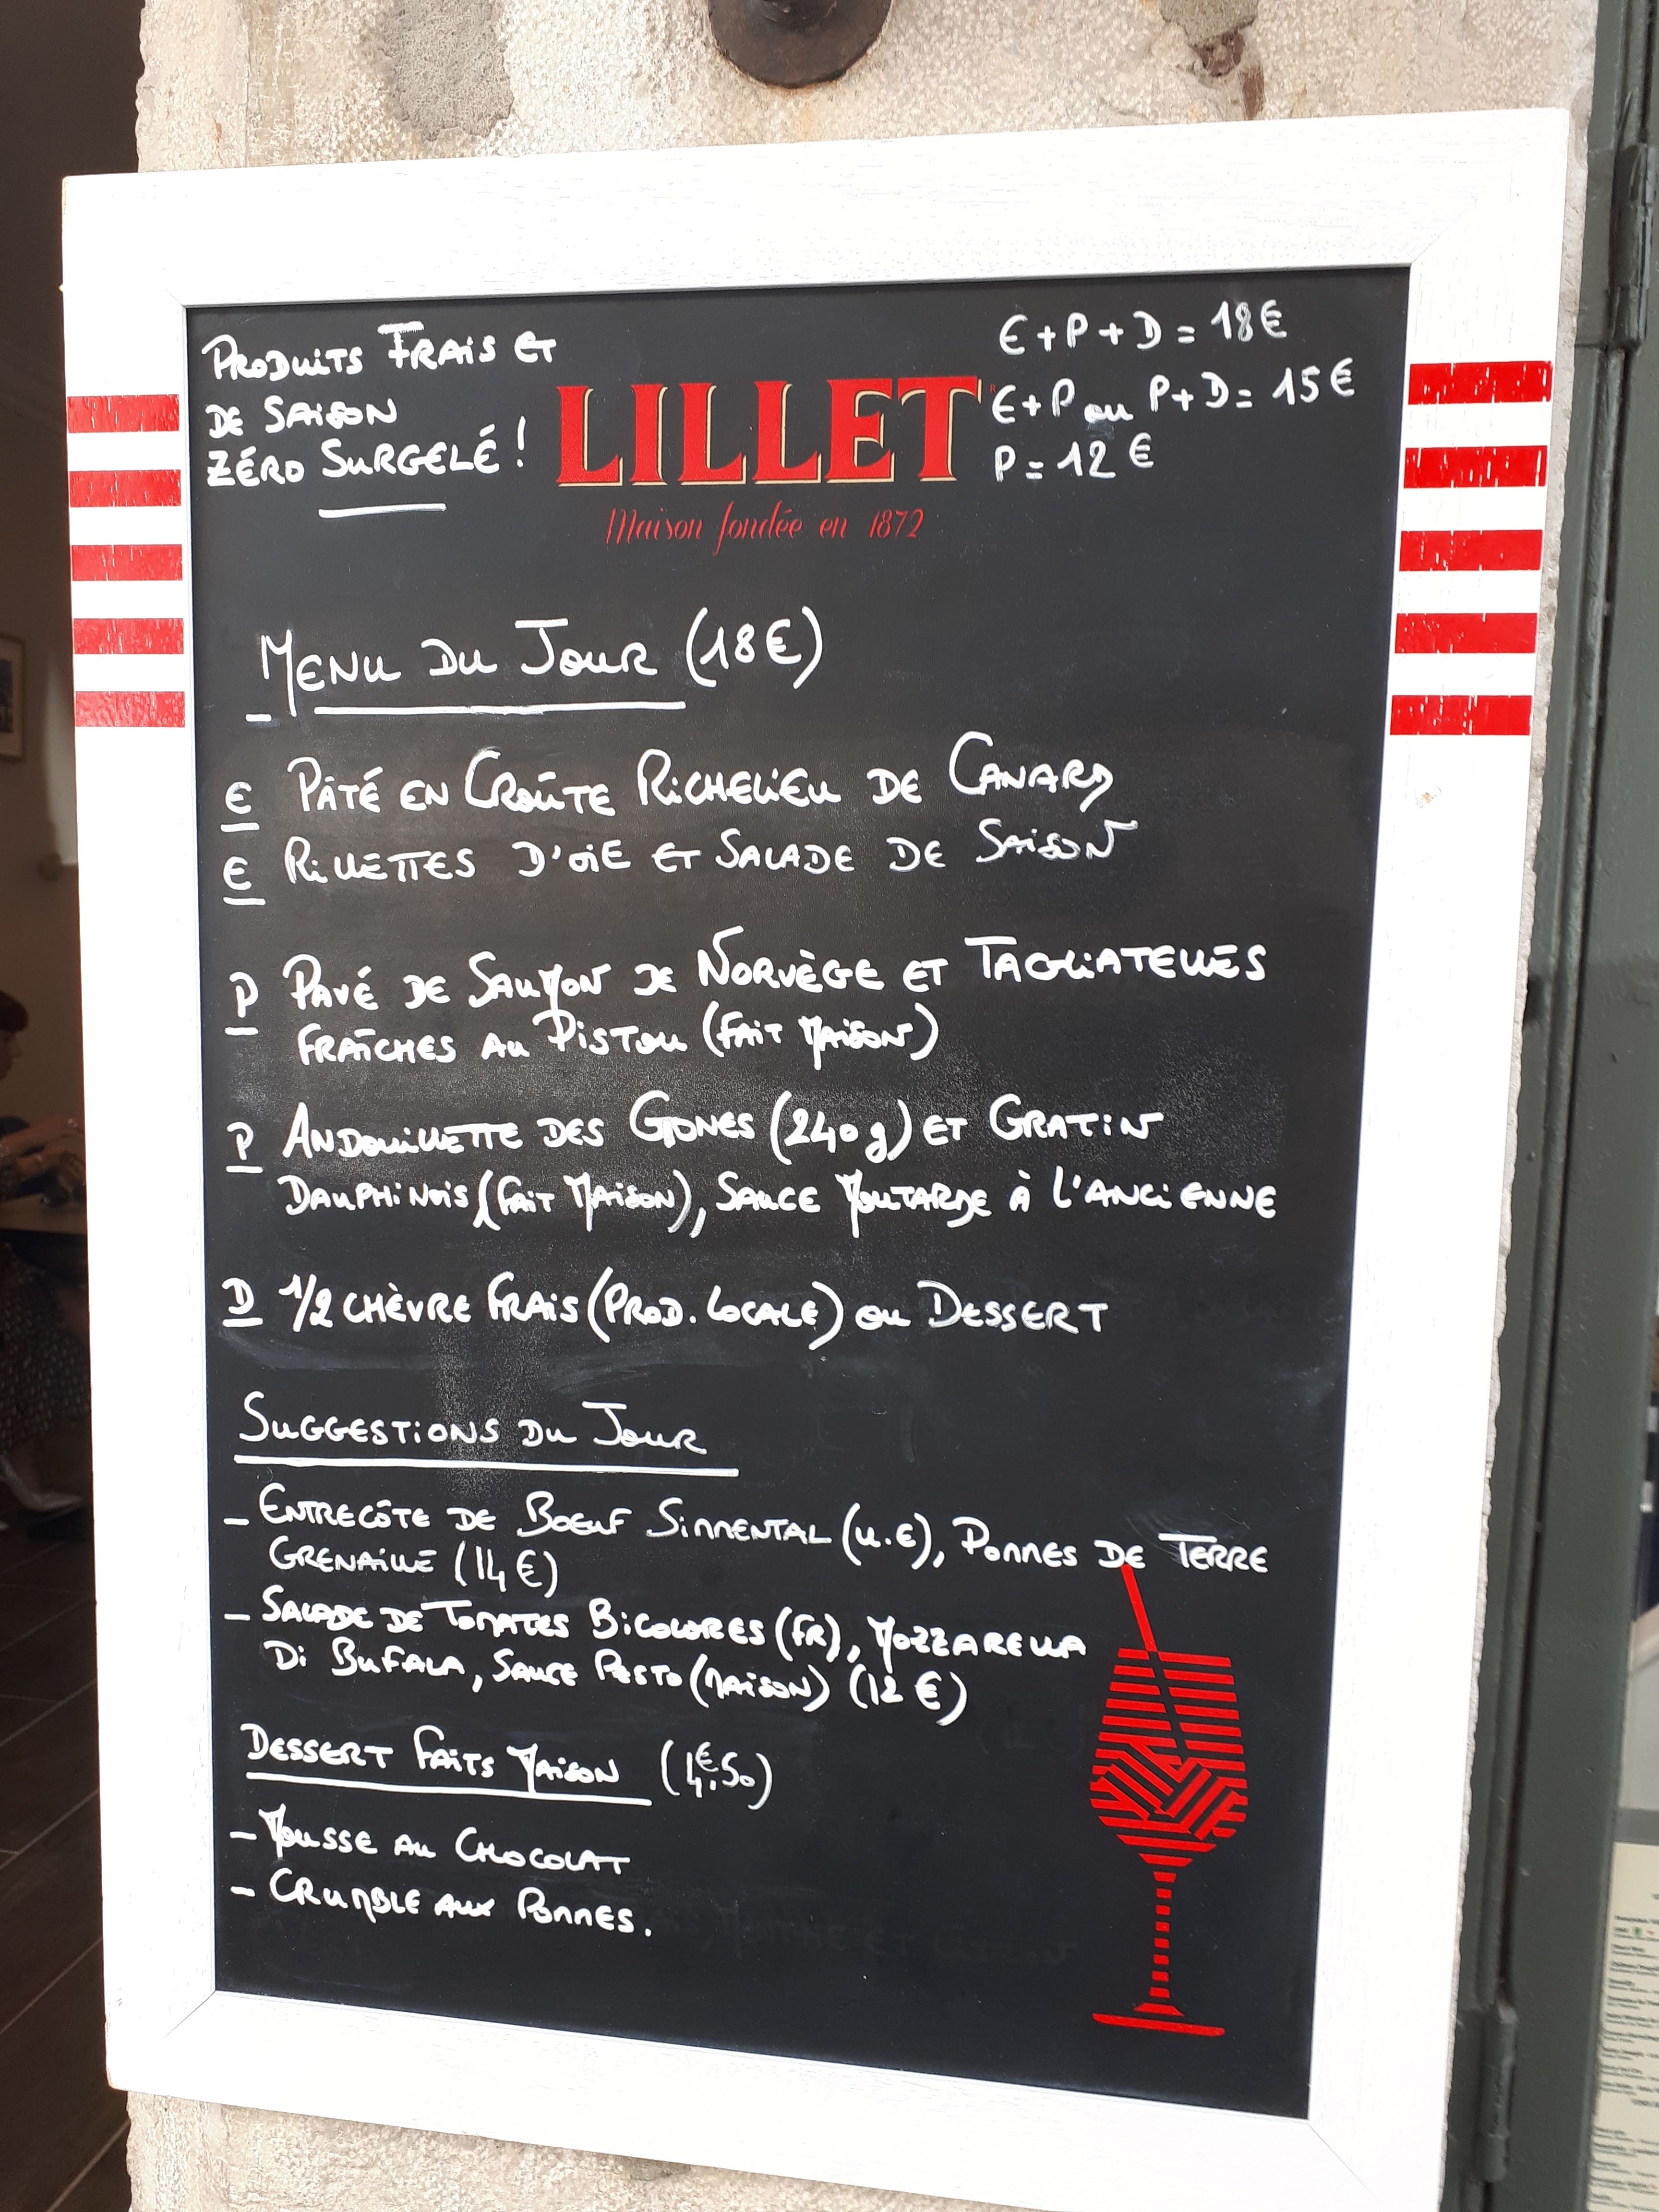 Produits Frais et
de Saison
Zéro Surgelé !
LILLET
Maison fondée en 1872
E + P + D = 18€
E + P ou P + D = 15€
P = 12€
Menu du Jour (18€)
E Pâté en Croûte Richelieu de Canard
E Rillettes d'oie et Salade de Saison
P Pavé de Saumon de Norvège et Tagliatelles
Fraîches au Pistou (Fait Maison)
P Andouillette des Gones (240g) et Gratin
Dauphinois (Fait Maison), Sauce Moutarde à l'ancienne
D 1/2 chèvre Frais (Prod. Locale) ou Dessert
Suggestions du Jour
- Entrecôte de Boeuf Simmental (U.E), Pommes de Terre
Grenaille (14€)
- Salade de Tomates Bicolores (FR), Mozzarella
Di Bufala, Sauce Pesto (Maison) (12€)
Dessert Faits Maison (4€.50)
- Mousse au Chocolat
- Crumble aux Pommes.